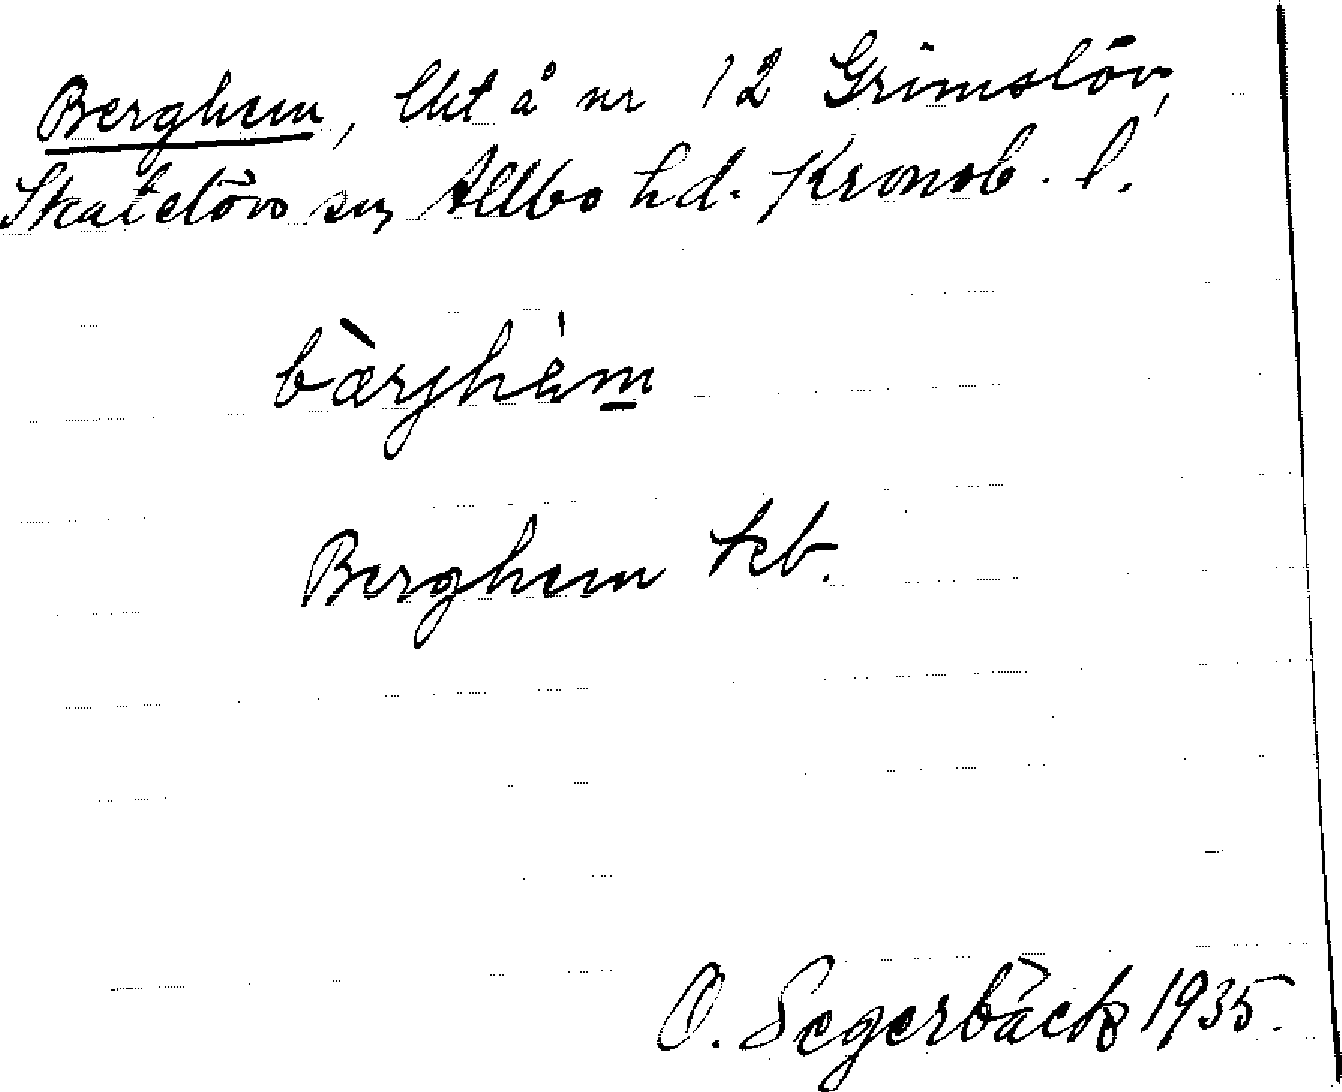 Berghem, lht å nr 12 Grimslöv,
Skatelövs sn, Allbo hd. Kronob. l.
bærjhèm
Berghem kb.
O. Segerbäck 1935.